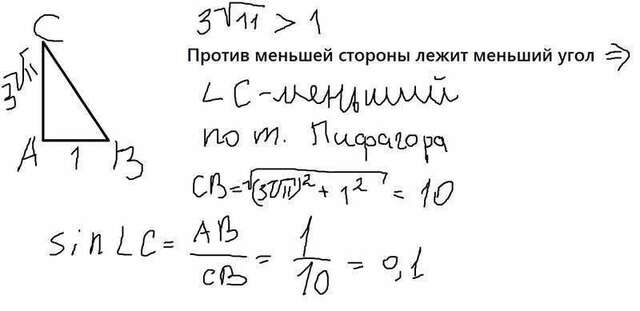 3√11 > 1
Против меньшей стороны лежит меньший угол ⇒
∠C - меньший
по т. Пифагора
CB = √(3√11)² + 1² = 10
sin∠C = AB/CB = 1/10 = 0,1
C
3√11
A 1 B